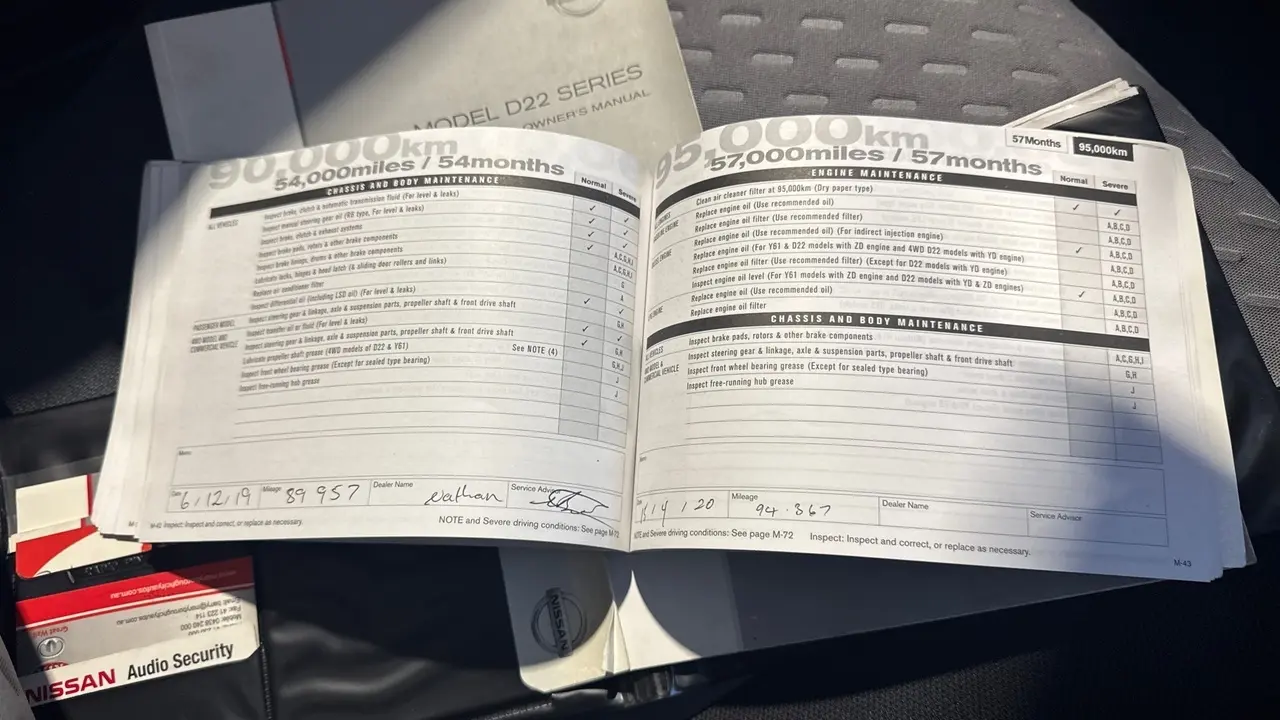 MODEL D22 SERIES
OWNER'S MANUAL
90,000km
54,000miles / 54months
CHASSIS AND BODY MAINTENANCE
Normal
Severe
ALL VEHICLES
Inspect brake, clutch & automatic transmission fluid (For level & leaks)
Inspect manual steering gear oil (RB type, For level & leaks)
Inspect brake, clutch & exhaust systems
Inspect brake pads, rotors & other brake components
Inspect brake linings, drums & other brake components
Lubricate locks, hinges & hood latch (& sliding door rollers and links)
Replace air conditioner filter
Inspect differential oil (including LSD oil) (For level & leaks)
PASSENGER MODEL
Inspect steering gear & linkage, axle & suspension parts, propeller shaft & front drive shaft
4WD MODEL AND COMMERCIAL VEHICLE
Inspect transfer oil or fluid (For level & leaks)
Inspect steering gear & linkage, axle & suspension parts, propeller shaft & front drive shaft
Lubricate propeller shaft grease (4WD models of D22 & Y61) See NOTE (4)
Inspect front wheel bearing grease (Except for sealed type bearing)
Inspect free-running hub grease
A,C,G,H,I
A,C,G,H,I
G
A
G,H
G,H
G,H,J
J
J
Memo
Date 6/12/19 Mileage 89 957 Dealer Name Nathan Service Advisor
M-42 Inspect: Inspect and correct, or replace as necessary.
NOTE and Severe driving conditions: See page M-72
95,000km
57,000miles / 57months
57Months 95,000km
ENGINE MAINTENANCE
Normal
Severe
Clean air cleaner filter at 95,000km (Dry paper type)
Replace engine oil (Use recommended oil)
Replace engine oil filter (Use recommended filter)
Replace engine oil (Use recommended oil) (For indirect injection engine)
Replace engine oil (For Y61 & D22 models with ZD engine and 4WD D22 models with YD engine)
Replace engine oil filter (Use recommended filter) (Except for D22 models with YD engine)
Inspect engine oil level (For Y61 models with ZD engine and D22 models with YD & ZD engines)
Replace engine oil (Use recommended oil)
Replace engine oil filter
A,B,C,D
A,B,C,D
A,B,C,D
A,B,C,D
A,B,C,D
A,B,C,D
A,B,C,D
CHASSIS AND BODY MAINTENANCE
ALL VEHICLES
Inspect brake pads, rotors & other brake components
Inspect steering gear & linkage, axle & suspension parts, propeller shaft & front drive shaft
Inspect front wheel bearing grease (Except for sealed type bearing)
Inspect free-running hub grease
A,C,G,H,I
G,H
J
J
/4/20 Mileage 94.867 Dealer Name Service Advisor
NOTE and Severe driving conditions: See page M-72 Inspect: Inspect and correct, or replace as necessary.
M-43
NISSAN
Mobile: 0438 240 000
Fax: 41 223 114
Great Wall
NISSAN Audio Security